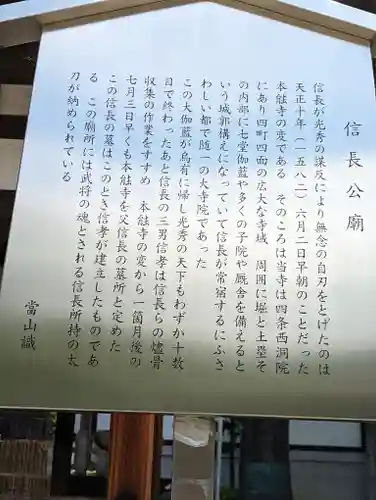 信長公廟
信長が光秀の謀反により無念の自刃をとげたのは
天正十年（一五八二）六月二日早朝のことだった
本能寺の変である　そのころは当寺は四条西洞院
にあり四町四面の広大な寺域　周囲に堀と土塁そ
の内部に七堂伽藍や多くの子院や厩舎を備えると
いう城郭構えになっていて信長が常宿するにふさ
わしい都で随一の大寺院であった
この大伽藍が烏有に帰し光秀の天下もわずか十数
日で終わったあと信長の三男信孝は信長らの燼骨
収集の作業をすすめ　本能寺の変から一箇月後の
七月三日早くも本能寺を父信長の墓所と定めた
この信長の墓はこのとき信孝が建立したものであ
る　この廟所には武将の魂とされる信長所持の太
刀が納められている
當山識